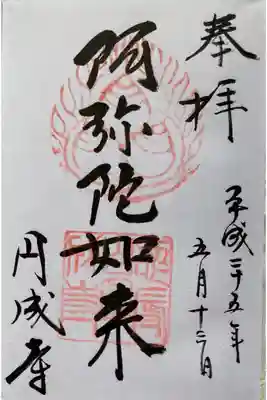 奉拝
平成二五年
五月十二日
阿弥陀如来
円成寺